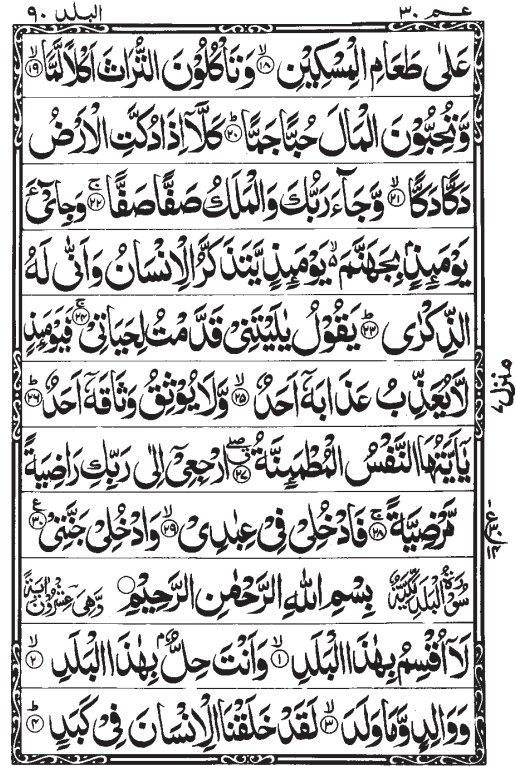 البلد ٩٠
عـمّ ٣٠
عَلٰى طَعَامِ الْمِسْكِيْنِ ۙ‏﴿۱۸﴾ وَتَاْكُلُوْنَ التُّرَاثَ اَكْلًا لَّمًّا ۙ‏﴿۱۹﴾
وَّتُحِبُّوْنَ الْمَالَ حُبًّا جَمًّا ؕ‏﴿۲۰﴾ كَلَّاۤ اِذَا دُكَّتِ الْاَرْضُ
دَكًّا دَكًّا ۙ‏﴿۲۱﴾ وَّجَآءَ رَبُّكَ وَالْمَلَكُ صَفًّا صَفًّا ۚ‏﴿۲۲﴾ وَجِایْٓءَ
يَوْمَٮِٕذٍۭ بِجَهَنَّمَ ۙ يَوْمَٮِٕذٍ يَّتَذَكَّرُ الْاِنْسَانُ وَاَنّٰى لَهُ
الذِّكْرٰى ؕ‏﴿۲۳﴾ يَقُوْلُ يٰلَيْتَنِىْ قَدَّمْتُ لِحَيَاتِىْ ۚ‏﴿۲۴﴾ فَيَوْمَٮِٕذٍ
لَّا يُعَذِّبُ عَذَابَهٗۤ اَحَدٌ ۙ‏﴿۲۵﴾ وَّلَا يُوْثِقُ وَثَاقَهٗۤ اَحَدٌ ؕ‏﴿۲۶﴾
يٰۤاَيَّتُهَا النَّفْسُ الْمُطْمَٮِٕنَّةُ ۖ‏﴿۲۷﴾ ارْجِعِىْۤ اِلٰى رَبِّكِ رَاضِيَةً
مَّرْضِيَّةً ۚ‏﴿۲۸﴾ فَادْخُلِىْ فِىْ عِبٰدِىْ ۙ‏﴿۲۹﴾ وَادْخُلِىْ جَنَّتِىْ ع‏﴿۳۰﴾
سُوْرَةُ الْبَلَدِ مَكِّيَّةٌ بِسْمِ اللّٰهِ الرَّحْمٰنِ الرَّحِيْمِ وَّهِىَ عِشْرُوْنَ اٰيَةً
لَاۤ اُقْسِمُ بِهٰذَا الْبَلَدِ ۙ‏﴿۱﴾ وَاَنْتَ حِلٌّۢ بِهٰذَا الْبَلَدِ ۙ‏﴿۲﴾
وَوَالِدٍ وَّمَا وَلَدَ ۙ‏﴿۳﴾ لَقَدْ خَلَقْنَا الْاِنْسَانَ فِىْ كَبَدٍ ؕ‏﴿۴﴾
منزل ٧